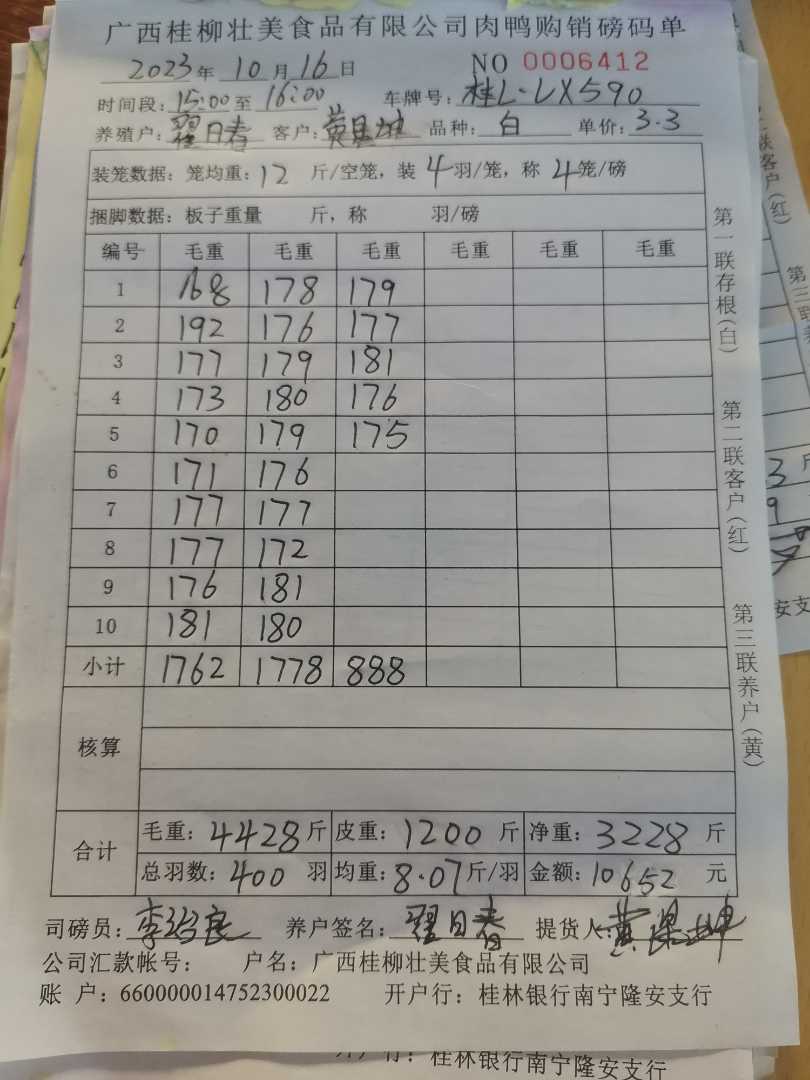 广西桂柳壮美食品有限公司肉鸭购销磅码单
2023年 10月16日 NO 0006412
时间段：15:00至 16:00 车牌号：桂L·LX590
养殖户：翟日春 客户：黄 坤 品种：白 单价：3.3
装笼数据：笼均重：12 斤/空笼，装 4羽/笼，称 4笼/磅
捆脚数据：板子重量 斤，称 羽/磅
编号 毛重 毛重 毛重 毛重 毛重 毛重
1 168 178 179
2 192 176 177
3 177 179 181
4 173 180 176
5 170 179 175
6 171 176
7 177 177
8 177 172
9 176 181
10 181 180
小计 1762 1778 888
核算
合计 毛重：4428斤 皮重：1200 斤 净重：3228 斤
总羽数：400 羽 均重：8.07斤/羽 金额：10652 元
司磅员：李 良 养户签名：翟日春 提货人：黄 坤
公司汇款帐号： 户名：广西桂柳壮美食品有限公司
账 户：660000014752300022 开户行：桂林银行南宁隆安支行
第一联存根（白）
第二联客户（红）
第三联养户（黄）
开户行：桂林银行南宁隆安支行